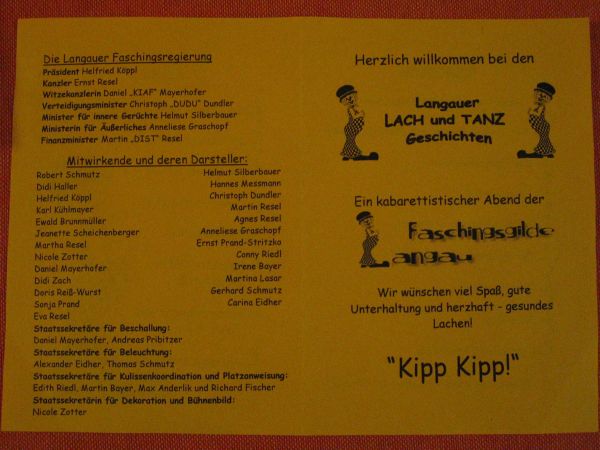 Die Langauer Faschingsregierung
Präsident Helfried Köppl
Kanzler Ernst Resel
Witzekanzlerin Daniel „KIAF" Mayerhofer
Verteidigungsminister Christoph „DUDU" Dundler
Minister für innere Gerüchte Helmut Silberbauer
Ministerin für Äußerliches Anneliese Graschopf
Finanzminister Martin „DIST" Resel
Mitwirkende und deren Darsteller:
Robert Schmutz
Didi Haller
Helfried Köppl
Karl Kühlmayer
Ewald Brunnmüller
Jeanette Scheichenberger
Martha Resel
Nicole Zotter
Daniel Mayerhofer
Didi Zach
Doris Reiß-Wurst
Sonja Prand
Eva Resel
Helmut Silberbauer
Hannes Messmann
Christoph Dundler
Martin Resel
Agnes Resel
Anneliese Graschopf
Ernst Prand-Stritzka
Conny Riedl
Irene Bayer
Martina Lasar
Gerhard Schmutz
Carina Eidher
Staatssekretäre für Beschallung:
Daniel Mayerhofer, Andreas Pribitzer
Staatssekretäre für Beleuchtung:
Alexander Eidher, Thomas Schmutz
Staatssekretäre für Kulissenkoordination und Platzonweisung:
Edith Riedl, Martin Bayer, Max Anderlik und Richard Fischer
Staatssekretärin für Dekoration und Bühnenbild:
Nicole Zotter
Herzlich willkommen bei den
Langauer
LACH und TANZ
Geschichten
Ein kabarettistischer Abend der
Faschingsgilde
Langau
Wir wünschen viel Spaß, gute
Unterhaltung und herzhaft - gesundes
Lachen!
"Kipp Kipp!"